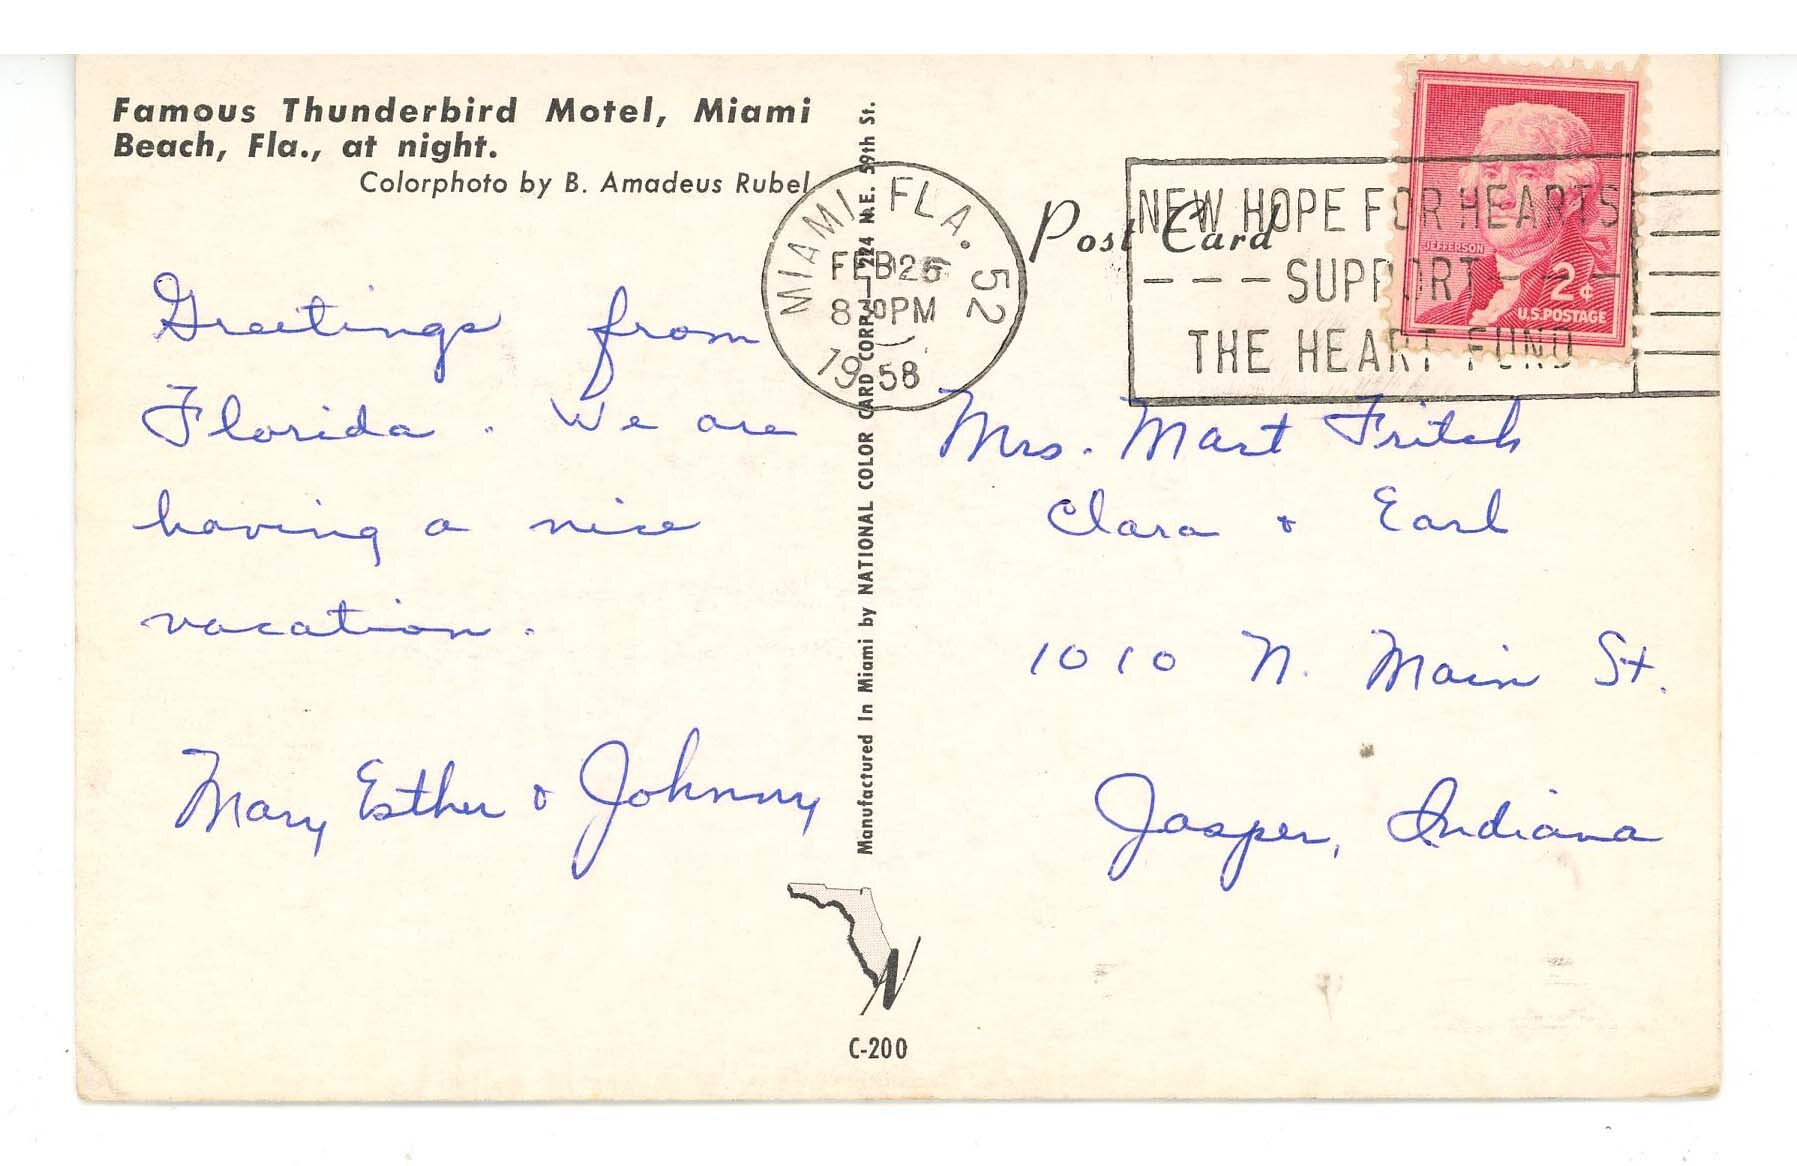 Famous Thunderbird Motel, Miami
Beach, Fla., at night.
Colorphoto by B. Amadeus Rubel
Greetings from
Florida. We are
having a nice
vacation.
Mary Esther & Johnny
Manufactured in Miami by NATIONAL COLOR CARD CORP., 224 N.E. 59th St.
C-200
MIAMI, FLA. 52
FEB 26
8 30 PM
1958
Post Card
NEW HOPE FOR HEARTS
--- SUPPORT ---
THE HEART FUND
JEFFERSON
2¢
U.S. POSTAGE
Mrs. Mart Fritch
Clara & Earl
1010 N. Main St.
Jasper, Indiana